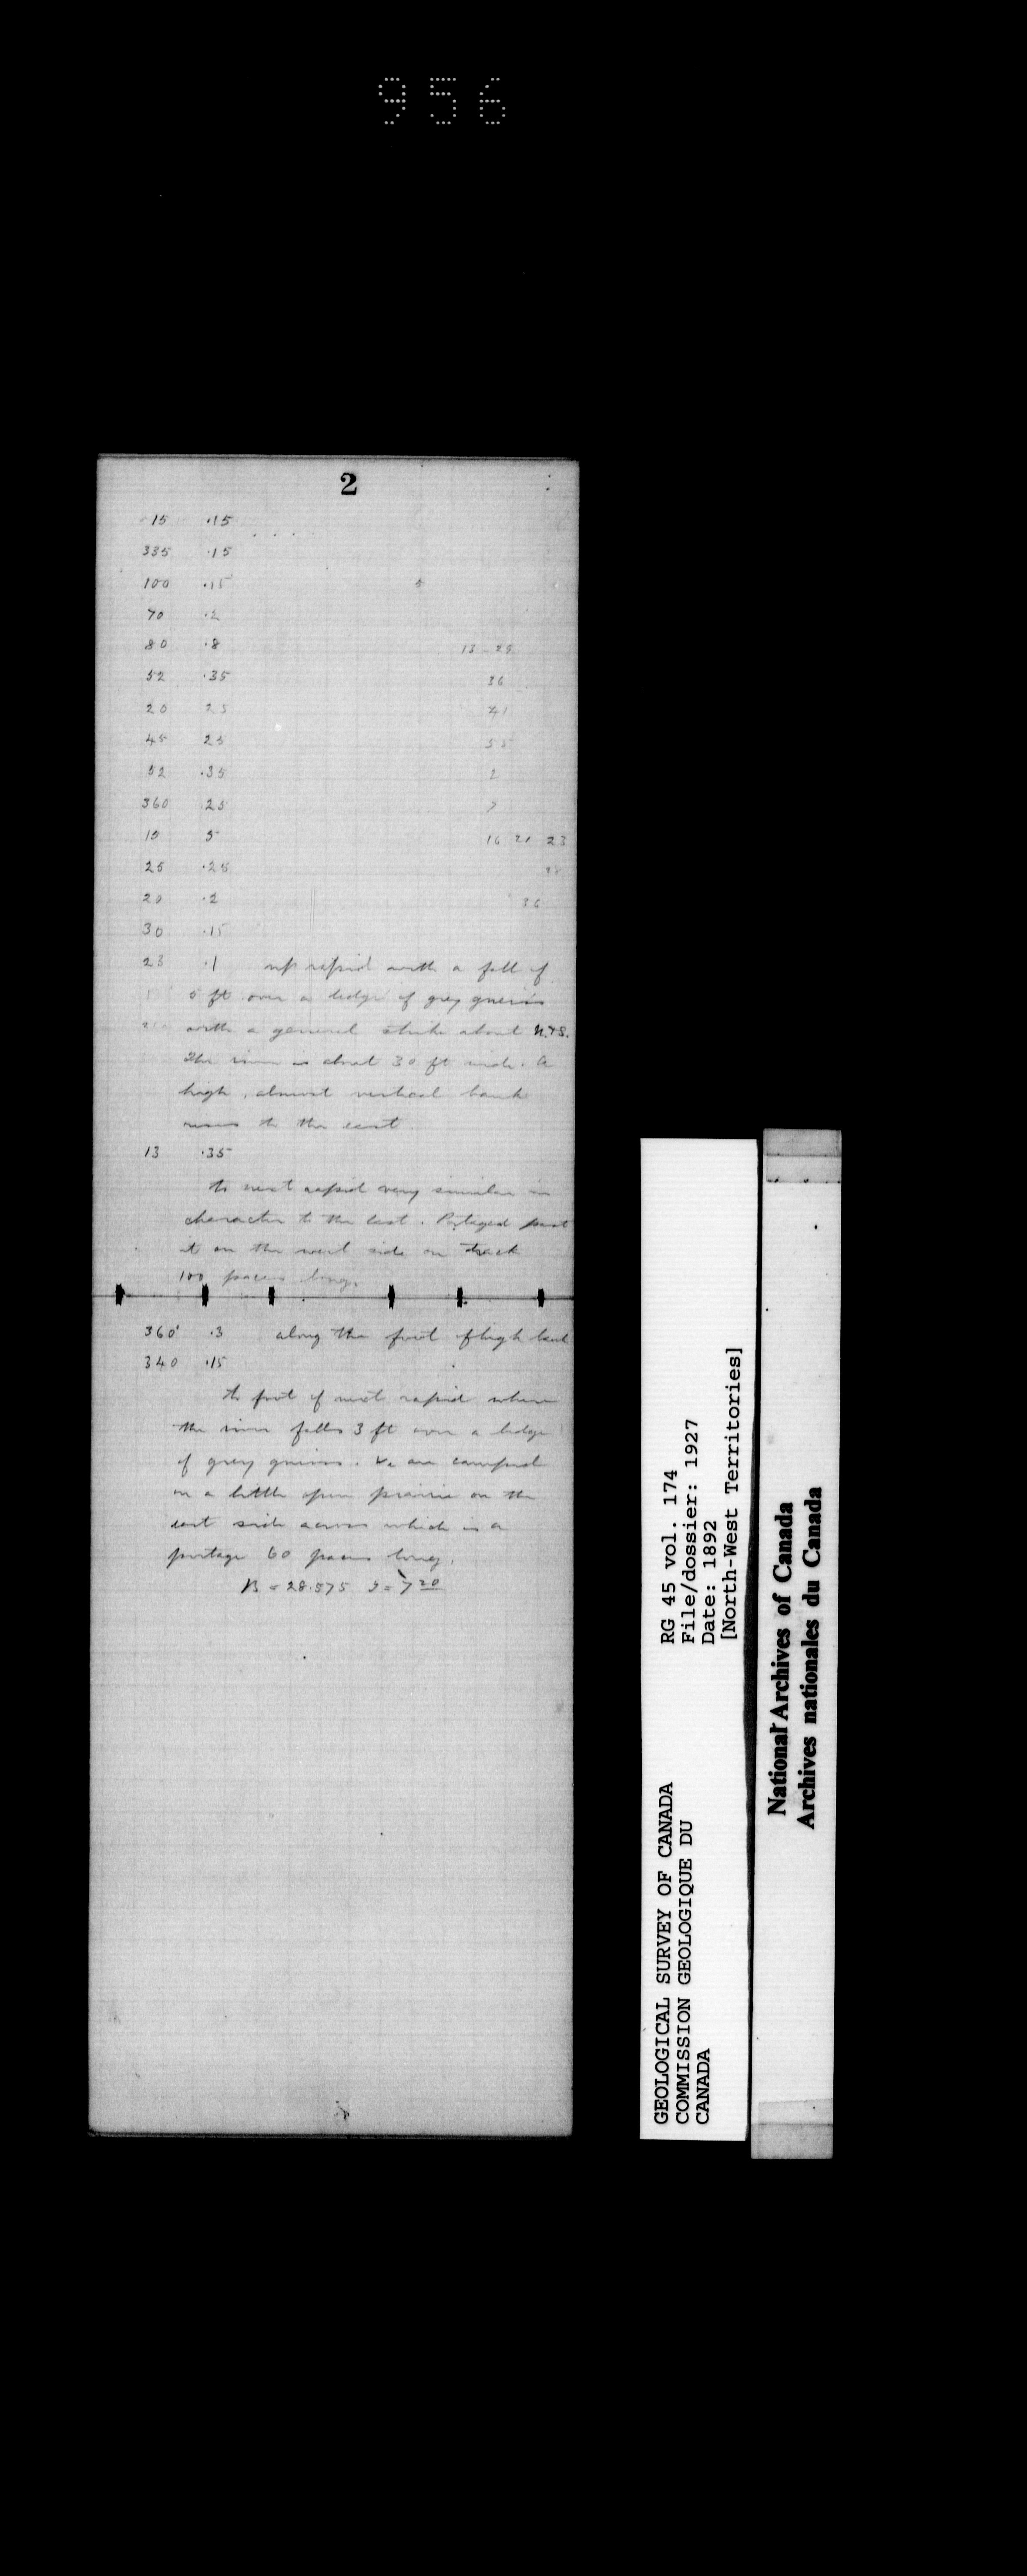 956
2
15 .15
335 .15
100 .15
70 .2
80 .8 13-25
52 .35 36
20 25 41
45 25 55
52 .35 2
360 .25 7
15 5 16 21 23
25 .25
20 .2 36
30 .15
23 .1 up rapid with a fall of
5 ft over a ledge of grey gneiss
with a general strike about N.&S.
The river is about 30 ft wide. A
high, almost vertical bank
rises to the east.
13 .35
to next rapid very similar in
character to the last. Portaged past
it on the west side on track
100 paces long.
360 .3 along the foot of high bank
340 .15
to foot of next rapid where
the river falls 3 ft over a ledge
of grey gneiss. We are camped
on a little open prairie on the
east side across which is a
portage 60 paces long.
B = 28.575 = 7 20
GEOLOGICAL SURVEY OF CANADA
COMMISSION GEOLOGIQUE DU
CANADA
RG 45 vol. 174
File/dossier: 1927
Date: 1892
[North-West Territories]
National Archives of Canada
Archives nationales du Canada